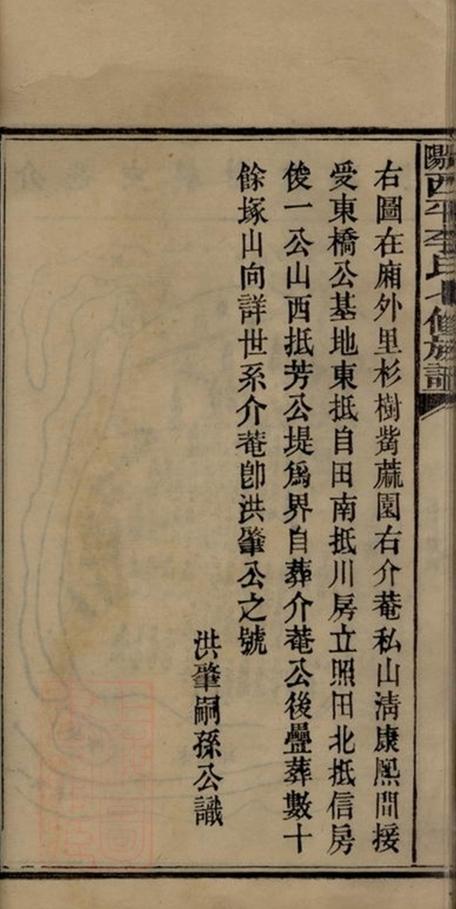 陽西平李氏七修族譜
右圖在廂外里杉樹觜蔴園右介菴私山清康熙間接
受東橋公基地東抵自田南抵川房立照田北抵信房
俊一公山西抵芳公堤爲界自葬介菴公後疊葬數十
餘塚山向詳世系介菴卽洪肇公之號
洪肇嗣孫公識